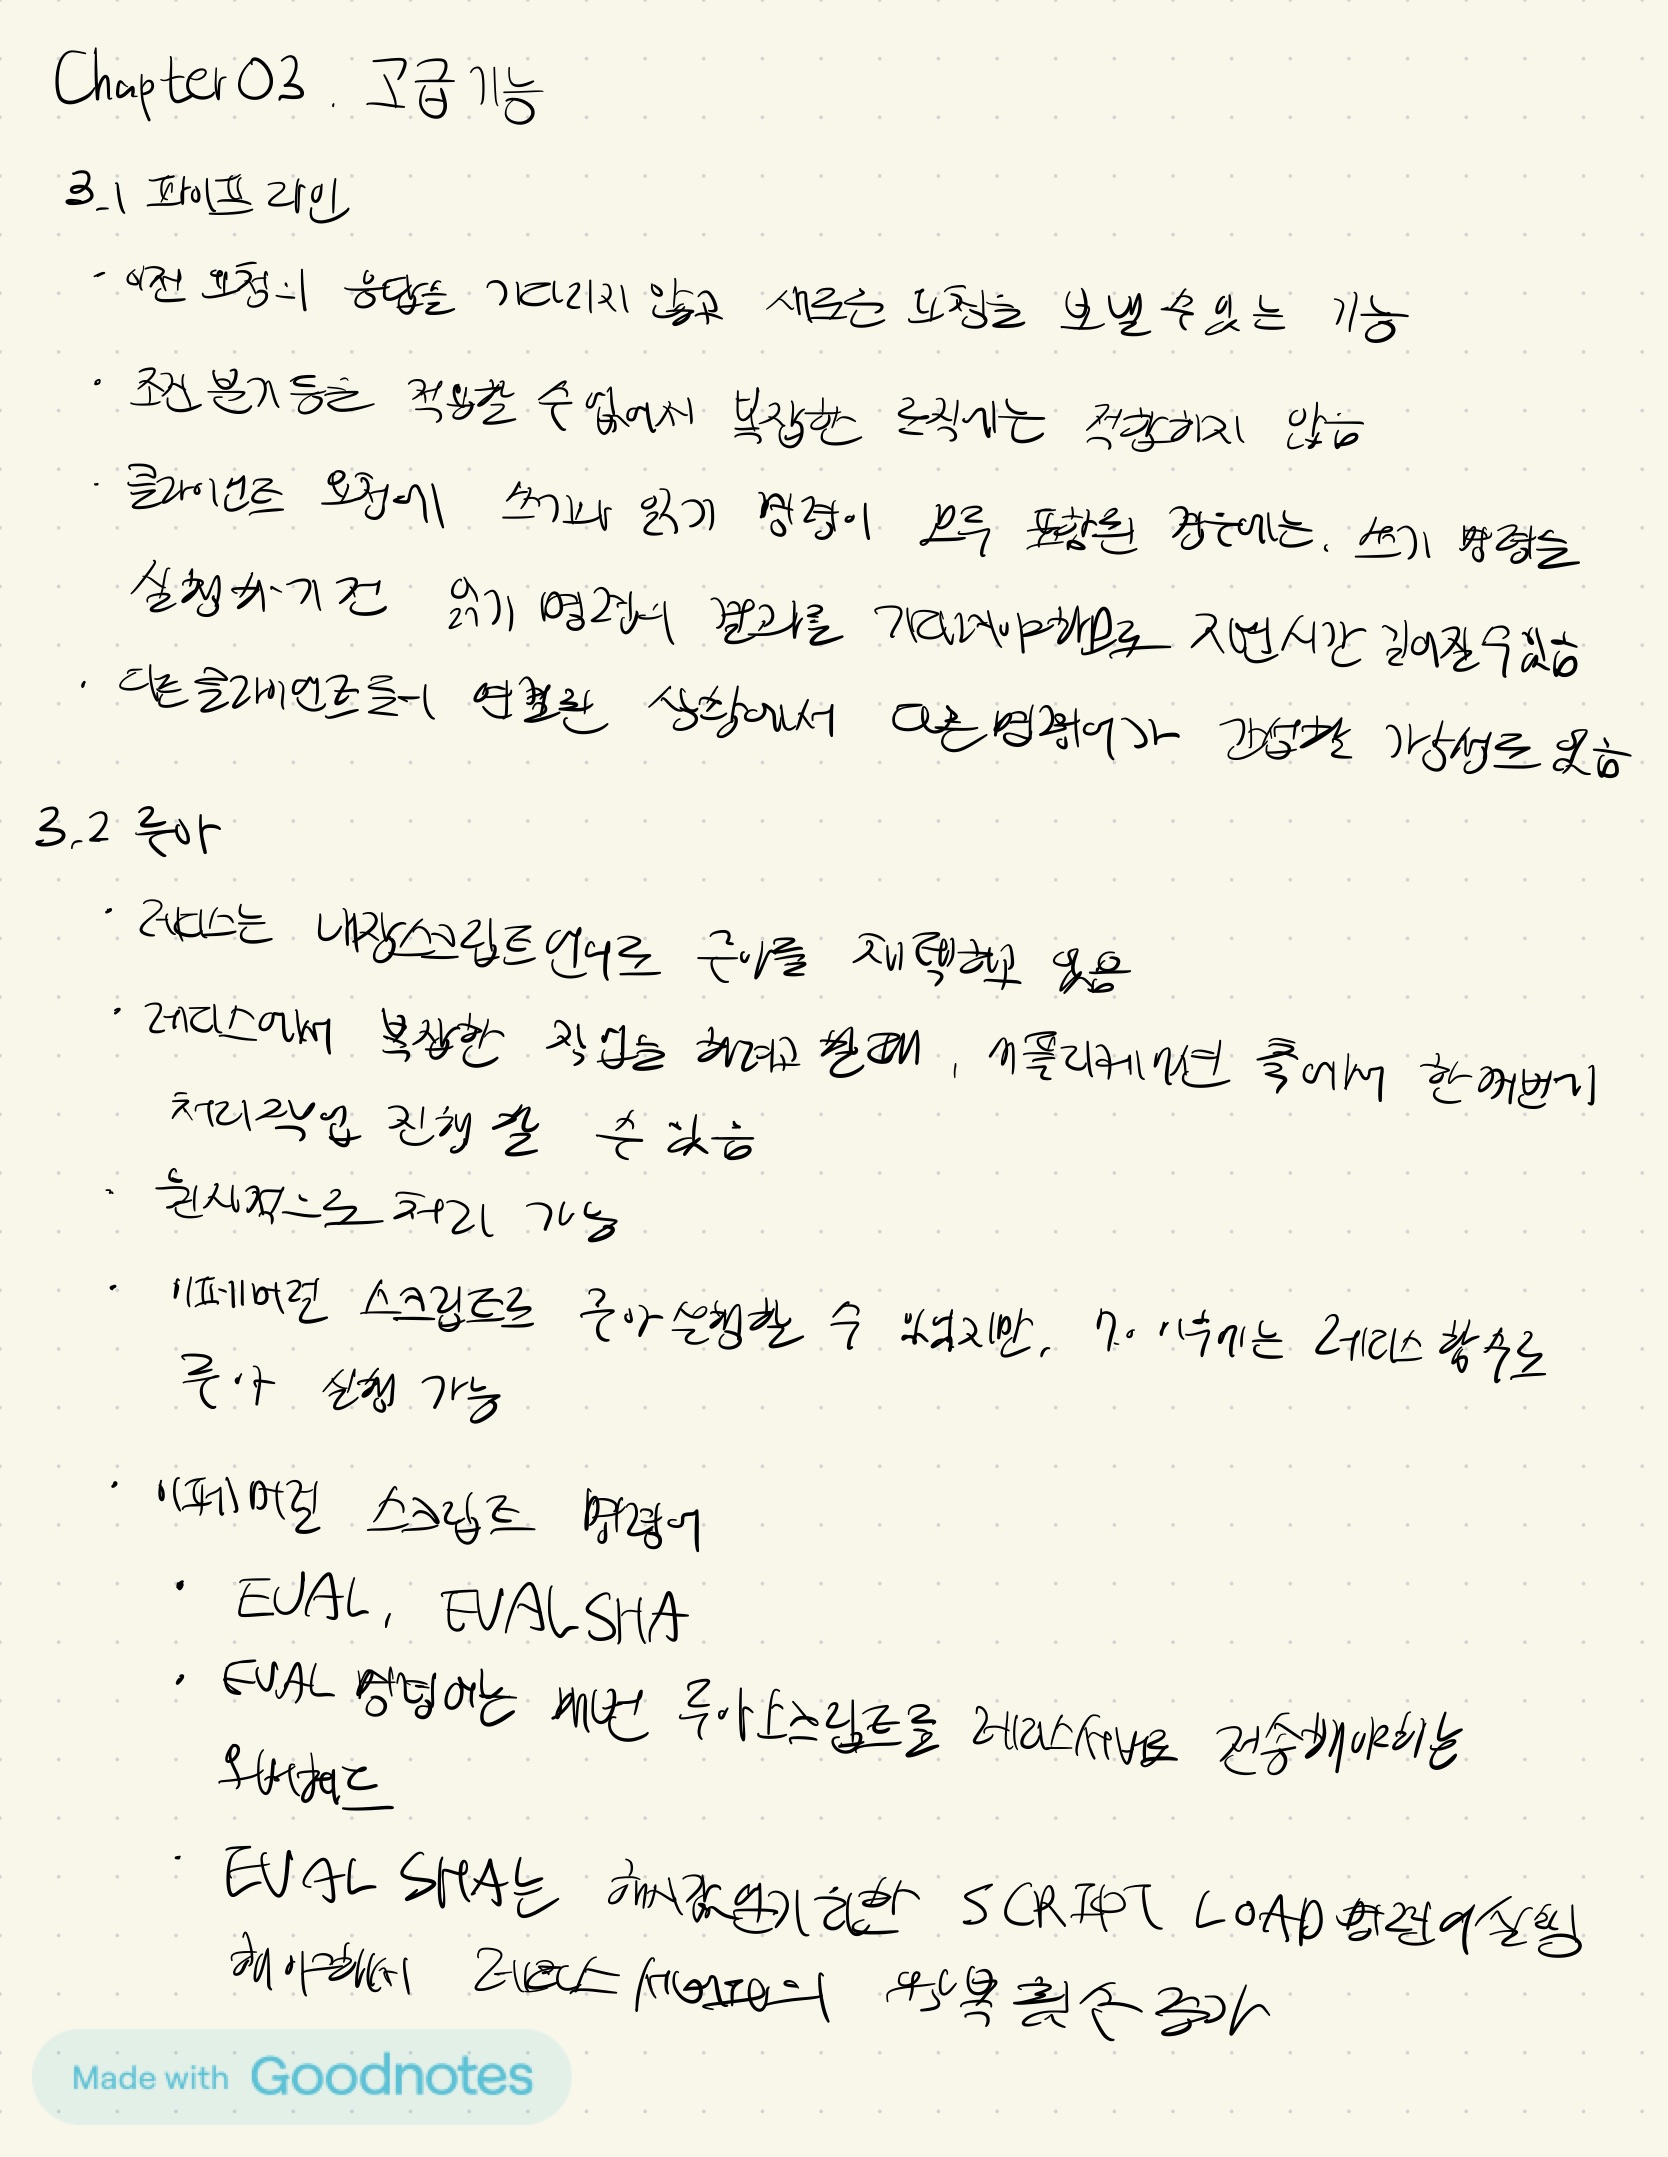 Chapter 03. 고급 기능
3.1 파이프 라인
· 이전 요청의 응답을 기다리지 않고 새로운 요청을 보낼 수 있는 기능
· 조건 분기 등을 적용할 수 없어서 복잡한 로직에는 적합하지 않음
· 클라이언트 요청에 쓰기와 읽기 명령이 모두 포함된 경우에는, 쓰기 명령을
실행하기 전 읽기 명령의 결과를 기다려야하므로 지연시간 길어질 수 있음
· 다른 클라이언트들이 연결된 상황에서 다른 명령어가 간섭할 가능성도 있음
3.2 루아
· 레디스는 내장스크립트언어로 루아를 채택하고 있음
· 레디스에서 복잡한 작업을 하려고 할 때, 어플리케이션 측에서 한꺼번에
처리작업 진행 할 수 있음
· 원시적으로 처리 가능
· 이페머럴 스크립트로 루아 실행할 수 있었지만, 7.0 이후에는 레디스 함수로
루아 실행 가능
· 이페머럴 스크립트 명령어
· EVAL, EVALSHA
· EVAL 명령어는 매번 루아스크립트를 레디스서버로 전송해야하는
오버헤드
· EVALSHA는 해시값 얻기 위한 SCRIPT LOAD 명령어 실행
해야해서 레디스 서버와의 왕복 횟수 증가
Made with Goodnotes